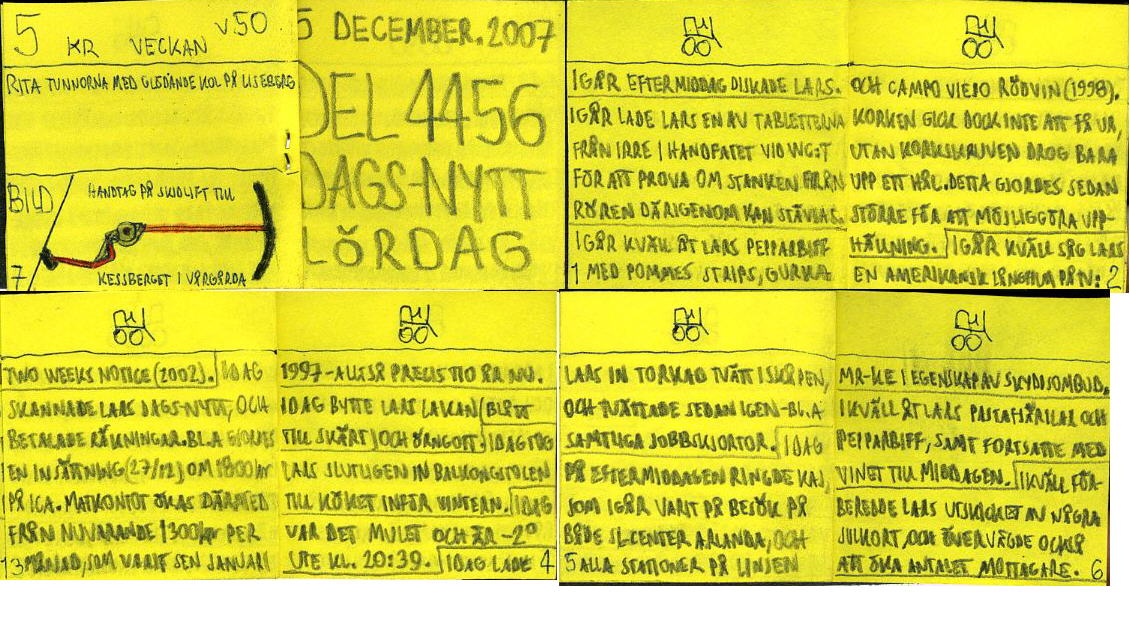 5 KR VECKAN V50
RITA TUNNORNA MED GLÖDANDE KOL PÅ LISEBERG
BILD
HANDTAG PÅ SKIDLIFT TILL
7
KESSBERGET I VÅRGÅRDA
5 DECEMBER. 2007
DEL 4456
DAGS-NYTT
LÖRDAG
IGÅR EFTERMIDDAG DISKADE LARS.
IGÅR LADE LARS EN AV TABLETTERNA
FRÅN IRRE I HANDFATET VID WC:T
FÖR ATT PROVA OM STANKEN FRÅN
RÖREN DÄRIGENOM KAN STÄVJAS.
IGÅR KVÄLL ÅT LARS PEPPARBIFF
1 MED POMMES STRIPS, GURKA
OCH CAMPO VIEJO RÖDVIN (1998).
KORKEN GICK DOCK INTE ATT FÅ UR,
UTAN KORKSKRUVEN DROG BARA
UPP ETT HÅL. DETTA GJORDES SEDAN
STÖRRE FÖR ATT MÖJLIGGÖRA UPP-
HÄLLNING. IGÅR KVÄLL SÅG LARS
EN AMERIKANSK LÅNGFILM PÅ TV: 2
TWO WEEKS NOTICE (2002). IDAG
SKANNADE LARS DAGS-NYTT, OCH
BETALADE RÄKNINGAR. BL.A GJORDES
EN INSÄTTNING (27/12) OM 1800 kr
PÅ ICA. MATKONTOT ÖKAS DÄRMED
FRÅN NUVARANDE 1300 kr PER
3 MÅNAD, SOM VARIT SEN JANUARI
1997-ALLTSÅ PRECIS TIO ÅR NU.
IDAG BYTTE LARS LAKAN (BLÅTT
TILL SKÄRT) OCH ÖRNGOTT. IDAG TOG
LARS SLUTLIGEN IN BALKONGSTOLEN
TILL KÖKET INFÖR VINTERN. IDAG
VAR DET MULET OCH ÄR -2°
UTE KL. 20:39. IDAG LADE 4
LARS IN TORKAD TVÄTT I SKÅPEN,
OCH TVÄTTADE SEDAN IGEN-BL.A
SAMTLIGA JOBBSKJORTOR. IDAG
PÅ EFTERMIDDAGEN RINGDE KAJ,
SOM IGÅR VARIT PÅ BESÖK PÅ
BÅDE SL-CENTER ARLANDA, OCH
5 ALLA STATIONER PÅ LINJEN
MR-KE I EGENSKAP AV SKYDDSOMBUD.
IKVÄLL ÅT LARS PASTAFJÄRILAR OCH
PEPPARBIFF, SAMT FORTSATTE MED
VINET TILL MIDDAGEN. IKVÄLL FÖR-
BEREDDE LARS UTSKICKET AV NÅGRA
JULKORT, OCH ÖVERVÄGDE OCKSÅ
ATT ÖKA ANTALET MOTTAGARE. 6